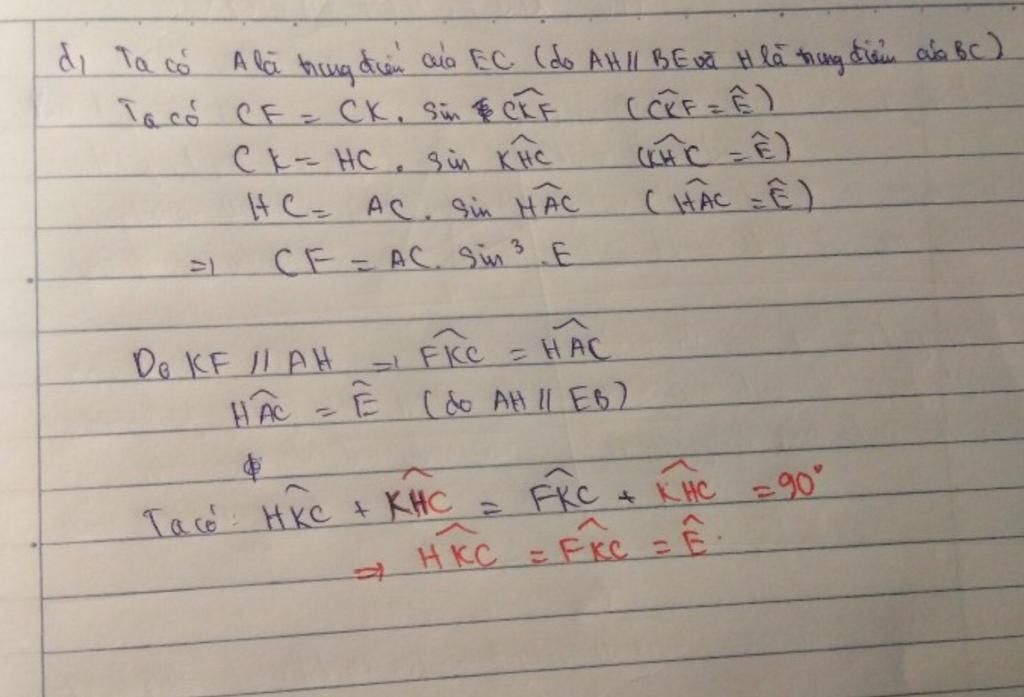 d, Ta có A là trung điểm của EC (do AH // BE và H là trung điểm của BC)
Ta có CF = CK. sin \widehat{CKF} (\widehat{CKF} = \widehat{E})
CK = HC. sin \widehat{KHC} (\widehat{KHC} = \widehat{E})
HC = AC. sin \widehat{HAC} (\widehat{HAC} = \widehat{E})
=> CF = AC. sin³.E
Do KF // AH => \widehat{FKC} = \widehat{HAC}
\widehat{HAC} = \widehat{E} (do AH // EB)
Ta có: \widehat{HKC} + \widehat{KHC} = \widehat{FKC} + \widehat{KHC} = 90°
=> \widehat{HKC} = \widehat{FKC} = \widehat{E}.